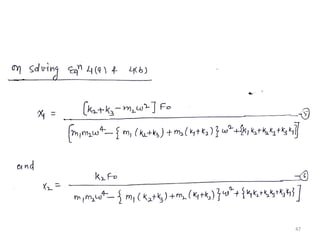 on solving eqⁿ 4(a) & 4(b)
x₁ = [k₂+k₃-m₂ω²] F₀ / [m₁m₂ω⁴-{m₁(k₂+k₃)+m₂(k₁+k₂)}ω²+{k₁k₂+k₂k₃+k₃k₁}] -⑤
and
x₂ = k₂F₀ / m₁m₂ω⁴-{m₁(k₂+k₃)+m₂(k₁+k₂)}ω²+{k₁k₂+k₂k₃+k₃k₁}] -⑥
47